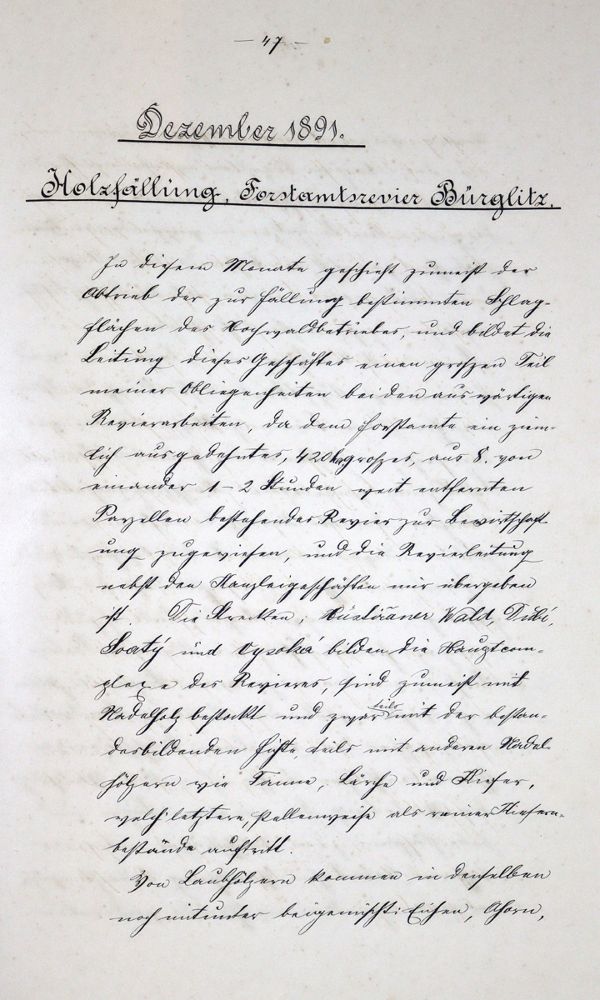 — 47 —
Dezember 1891.
Holzfällung, Forstamtsrevier Bürglitz.
In diesem Monate geschieht zumeist der
Abtrieb der zur Fällung bestimmten Schlag-
flächen des Hochwaldbetriebes, und bildet die
Leitung dieses Geschäftes einen groszen Teil
meiner Obliegenheiten bei den auswärtigen
Revierarbeiten, da dem Forstamte ein ziem-
lich ausgedehntes, 420 groszes, aus 8. von
einander 1-2 Stunden weit entfernten
Parzellen bestehendes Revier zur Bewirtschaft-
ung zugewiesen, und die Revierleitung
nebst den Kanzleigeschäften mir übergeben
ist. Die Strecken: Wald, Dibí,
Svatý und Vysoká bilden die Hauptcom-
plexe des Revieres, sind zumeist mit
Nadelholz bestockt und zwar teils mit der bestan-
desbildenden Fichte, teils mit anderen Nadel-
hölzern wie Tanne, Lärche und Kiefer,
welch' letztere, stellenweise als reiner Kiefern-
bestände auftritt.
Von Laubhölzern kommen in denselben
noch mitunter beigemischt: Eichen, Ahorn,